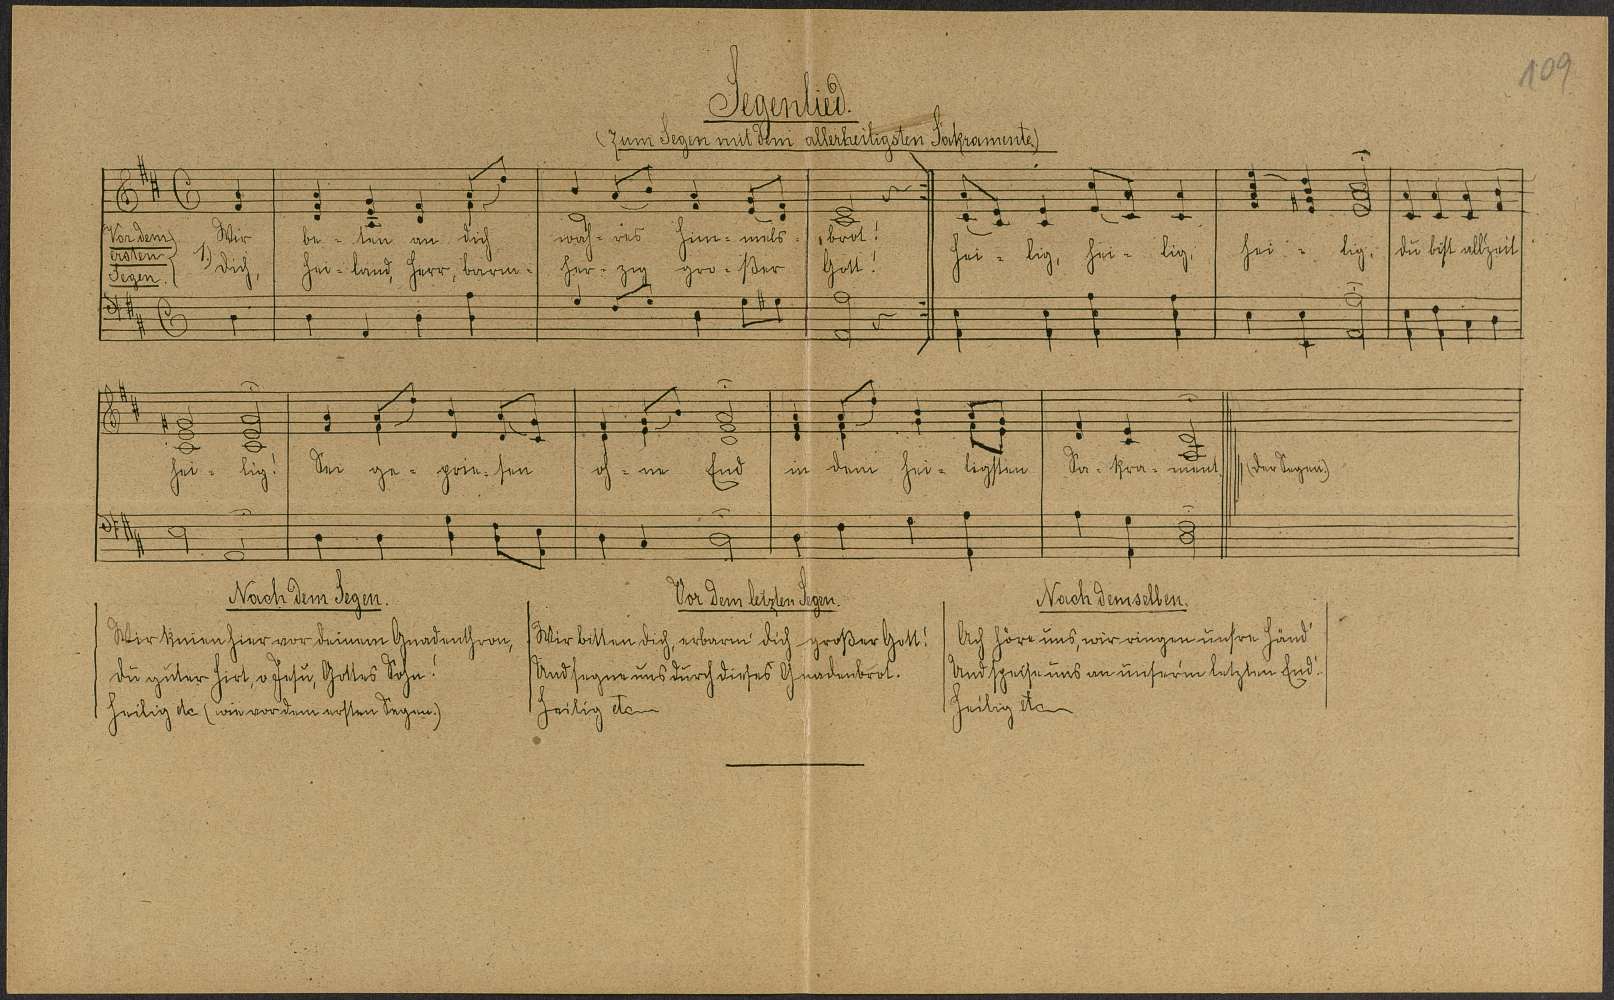 109
Segenlied.
(Zum Segen mit dem allerheiligsten Sakramente.)
Vor dem
ersten
Segen.
1.) Wir be-ten an dich wah-res Him-mels-brot!
Dich, Hei-land, Herr, barm-her-zig gro-ßer Gott!
Hei-lig, hei-lig, hei-lig, du bist allzeit
hei-lig! Sei ge-prie-sen oh-ne End in dem hei-ligsten Sa-kra-ment (Der Segen.)
Nach dem Segen.
Wir knien hier vor deinem Gnadenthron,
du guter Hirt, o Jesu, Gottes Sohn!
Heilig etc (wie vor dem ersten Segen.)
Vor dem letzten Segen.
Wir bitten dich, erbarm' dich großer Gott!
Und segne uns durch dieses Gnadenbrot.
Heilig etc
Nach demselben.
Ach höre uns, wir ringen unsre Händ'
Und speise uns an unserm letzten End'.
Heilig etc